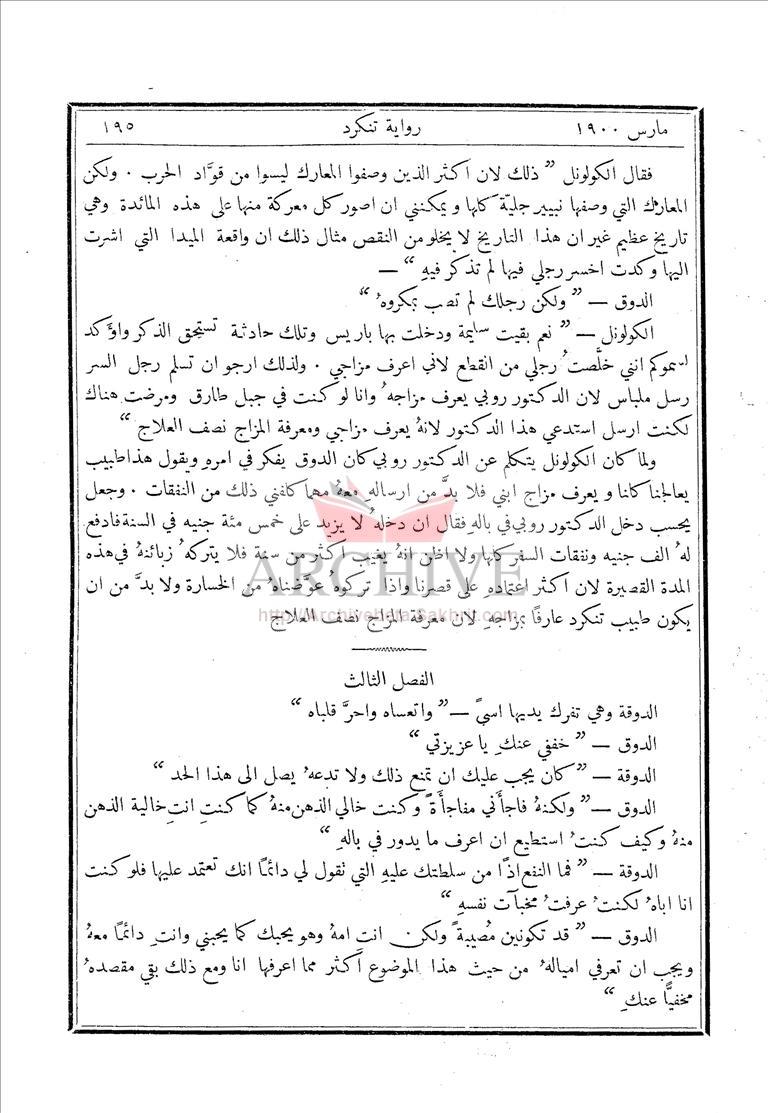 مارس ١٩٠٠ رواية تنكرد ١٩٥
فقال الكولونل ” ذلك لان اكثر الذين وصفوا المعارك ليسوا من قوَّاد الحرب . ولكن
المعارك التي وصفها نبيير جليَّة كلها ويمكنني ان اصور كل معركة منها على هذه المائدة وهي
تاريخ عظيم غير ان هذا التاريخ لا يخلو من النقص مثال ذلك ان واقعة الميدا التي اشرت
اليها وكدت اخسر رجلي فيها لم تذكر فيهِ “ —
الدوق — ” ولكن رجلك لم تصب بمكروه “
الكولونل — ” نعم بقيت سليمة ودخلت بها باريس وتلك حادثة تستحق الذكر واؤكد
لسموكم انني خلَّصتُ رجلي من القطع لاني اعرف مزاجي . ولذلك ارجو ان تسلم رجل السر
رسل ملباس لان الدكتور روبي يعرف مزاجهُ وانا لو كنت في جبل طارق ومرضت هناك
لكنت ارسل استدعي هذا الدكتور لانهُ يعرف مزاجي ومعرفة المزاج نصف العلاج “
ولما كان الكولونل يتكلم عن الدكتور روبي كان الدوق يفكر في امرهِ ويقول هذا طبيب
يعالجنا كلنا و يعرف مزاج ابني فلا بدَّ من ارسالهِ معهُ مهما كلفني ذلك من النفقات . وجعل
يحسب دخل الدكتور روبي في بالهِ فقال ان دخلهُ لا يزيد على خمس مئة جنيه في السنة فادفع
لهُ الف جنيه ونفقات السفر كلها ولا اظن انهُ يغيب اكثر من سنة فلا يتركهُ زبائنهُ في هذه
المدة القصيرة لان اكثر اعتماده على قصرنا واذا تركوهُ عوَّضناهُ من الخسارة ولا بدَّ من ان
يكون طبيب تنكرد عارفًا بمزاجهِ لان معرفة المزاج نصف العلاج
ARCHIVE
http://Archivebeta.Sakhrit.com
الفصل الثالث
الدوقة وهي تفرك يديها اسىً — ” واتعساه واحرَّ قلباه “
الدوق — ” خففي عنكِ يا عزيزتي “
الدوقة — ” كان يجب عليك ان تمنع ذلك ولا تدعهُ يصل الى هذا الحد “
الدوق — ” ولكنهُ فاجأني مفاجأةً وكنت خالي الذهن منهُ كما كنتِ انتِ خالية الذهن
منهُ وكيف كنتُ استطيع ان اعرف ما يدور في بالهِ “
الدوقة — ” فما النفع اذًا من سلطتك عليهِ التي نقول لي دائمًا انك تعتمد عليها فلو كنت
انا اباهُ لكنتُ عرفتُ مخبآت نفسهِ “
الدوق — ” قد تكونين مُصيبةً ولكن انت امهُ وهو يحبك كما يحبني وانتِ دائمًا معهُ
ويجب ان تعرفي اميالهُ من حيث هذا الموضوع اكثر مما اعرفها انا ومع ذلك بقي مقصدهُ
مخفيًّا عنكِ “